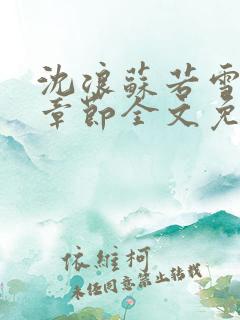 沈浪蘇若雪
章節全文免
依維柯
未任同意禁止转载